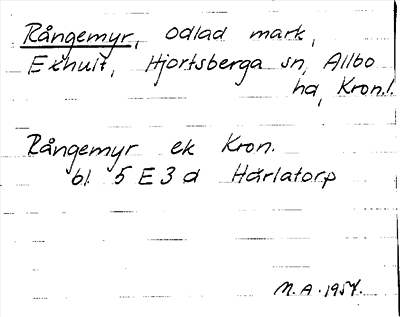 Rångemyr, odlad mark,
Ekhult, Hjortsberga sn, Allbo
hd, Kron.l.
Rångemyr ek Kron.
bl. 5 E 3 d Härlatorp
M.A. 1957.